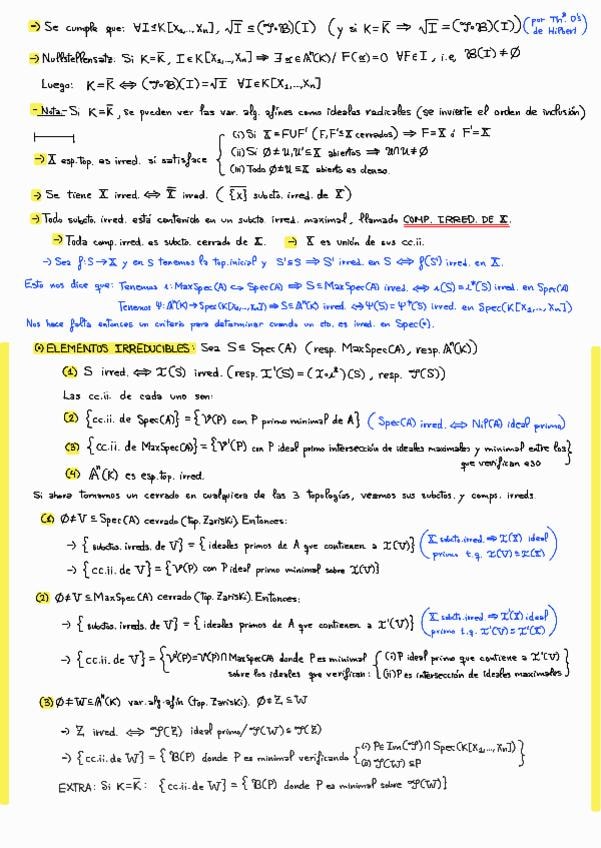 →) Se cumple que: ∀I≤K[X₁,..,Xₙ], √I ≤ (𝒥∘𝔅)(I) (y si K=K̄ ⇒ √I=(𝒥∘𝔅)(I)) (por Thª 0's de Hilbert)
→) Nullstellensatz. Si K=K̄, I∈K[X₁,..,Xₙ] ⇒ ∃α∈𝔸ⁿ(K)/ F(α)=0 ∀F∈I, i.e, 𝔅(I)≠∅
Luego: K=K̄ ⇔ (𝒥∘𝔅)(I)=√I ∀I∈K[X₁,..,Xₙ]
- Nota.- Si K=K̄, se pueden ver las var. alg. afines como ideales radicales (se invierte el orden de inclusión)
(i) Si X=F∪F' (F,F'⊆X cerrados) ⇒ F=X ó F'=X
→) X esp. top. es irred. si satisface (ii) Si ∅≠U,U'⊆X abiertos ⇒ U∩U≠∅
(iii) Todo ∅≠U⊆X abierto es denso.
→) Se tiene X irred. ⇔ X̄ irred. ( {x}‾ subcto. irred. de X)
→) Todo subcto. irred. está contenido en un subcto. irred. maximal, llamado COMP. IRRED. DE X.
→) Toda comp. irred. es subcto. cerrado de X. →) X es unión de sus cc.ii.
→) Sea f:S→X y en S tenemos la top. inicial y S'⊆S ⇒ S' irred. en S ⇔ f(S') irred. en X.
Esto nos dice que: Tenemos i:MaxSpec(A)↪Spec(A) ⇒ S⊆MaxSpec(A) irred. ⇔ i(S)=i*(S) irred. en Spec(A)
Tenemos Ψ:𝔸ⁿ(K)→Spec(K[X₁,..,Xₙ]) ⇒ S⊆𝔸ⁿ(K) irred. ⇔ Ψ(S)=Ψ*(S) irred. en Spec(K[X₁,..,Xₙ])
Nos hace falta entonces un criterio para determinar cuando un cto. es irred. en Spec(•).
(•) ELEMENTOS IRREDUCIBLES: Sea S⊆Spec(A) (resp. MaxSpec(A), resp. 𝔸ⁿ(K))
(1) S irred. ⇔ 𝓘(S) irred. (resp. 𝓘'(S)=(𝓘∘i*)(S), resp. 𝒥(S))
Las cc.ii. de cada uno son:
(2) {cc.ii. de Spec(A)}={𝒱(P) con P primo minimal de A} (Spec(A) irred. ⇔ Nil(A) ideal primo)
(3) {cc.ii. de MaxSpec(A)}={𝒱'(P) con P ideal primo intersección de ideales maximales y minimal entre los que verifican eso}
(4) 𝔸ⁿ(K) es esp. top. irred.
Si ahora tomamos un cerrado en cualquiera de las 3 topologías, veamos sus subctos. y comps. irreds.
(1) ∅≠V⊆Spec(A) cerrado (Top. Zariski). Entonces:
→) {subctos. irreds. de V}={ideales primos de A que contienen a 𝓘(V)} (X subcto. irred. ⇒ 𝓘(X) ideal primo t.q. 𝓘(V)⊆𝓘(X))
→) {cc.ii. de V}={𝒱(P) con P ideal primo minimal sobre 𝓘(V)}
(2) ∅≠V⊆MaxSpec(A) cerrado (Top. Zariski). Entonces:
→) {subctos. irreds. de V}={ideales primos de A que contienen a 𝓘'(V)} (X subcto. irred. ⇒ 𝓘'(X) ideal primo t.q. 𝓘'(V)⊆𝓘'(X))
→) {cc.ii. de V}={𝒱'(P)=𝒱(P)∩MaxSpec(A) donde P es minimal (i) P ideal primo que contiene a 𝓘'(V)
sobre los ideales que verifican: (ii) P es intersección de ideales maximales}
(3) ∅≠W⊆𝔸ⁿ(K) var. alg. afín (Top. Zariski). ∅≠Z⊆W
→) Z irred. ⇔ 𝒥(Z) ideal primo/ 𝒥(W)⊆𝒥(Z)
→) {cc.ii. de W}={𝔅(P) donde P es minimal verificando (1) P∈Im(𝒥)∩Spec(K[X₁,..,Xₙ]) (2) 𝒥(W)⊆P}
EXTRA: Si K=K̄: {cc.ii. de W}={𝔅(P) donde P es minimal sobre 𝒥(W)}